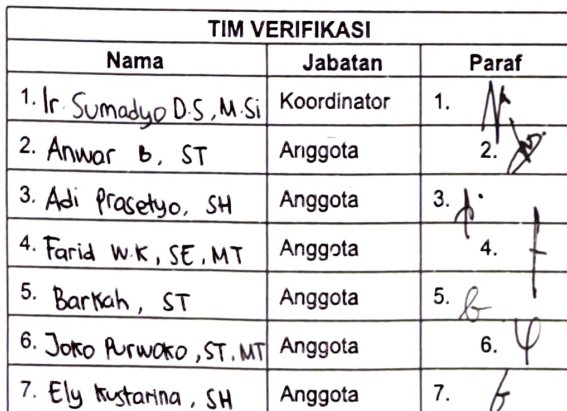 TIM VERIFIKASI
Nama Jabatan Paraf
1. Ir. Sumadyo D.S, M.Si Koordinator 1.
2. Anwar B, ST Anggota 2.
3. Adi Prasetyo, SH Anggota 3.
4. Farid W.K, SE, MT Anggota 4.
5. Barkah, ST Anggota 5.
6. Joko Purwoko, ST, MT Anggota 6.
7. Ely Kustarina, SH Anggota 7.